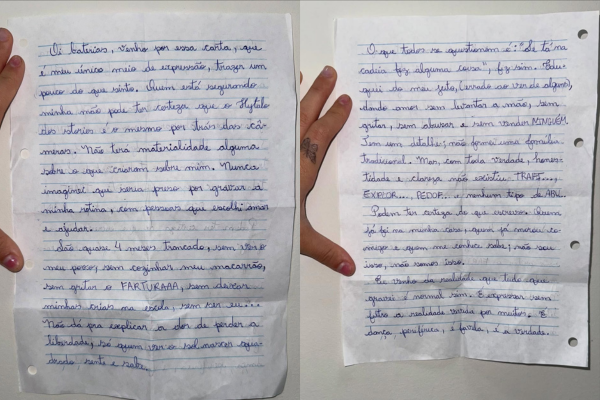 Oi baterias, venho por essa carta, que
é meu único meio de expressão, trazer um
pouco do que sinto. Quem está segurando
minha mão pode ter certeza que o Hytalo
dos stories é o mesmo por trás das câ-
meras. Não terá materialidade alguma
sobre o que criaram sobre mim. Nunca
imaginei que seria preso por gravar a
minha rotina, com pessoas que escolhi amar
e ajudar.
São quase 4 meses trancado, sem ver o
meu povo, sem cozinhar meu macarrão,
sem gritar o FARTURAAA, sem deixar
minhas crias na escola, sem ser eu...
Não dá pra explicar a dor de perder a
liberdade, só quem ver o sol nascer qua-
drado sente e sabe.
O que todos se questionam é: "Se tá na
cadeia fez alguma coisa", fiz sim. Edu-
quei do meu jeito, (errado ao ver de alguns),
dando amor sem levantar a mão, sem
gritar, sem abusar e sem vender NINGUÉM.
Tem um detalhe; não formei uma família
tradicional. Mas, com toda verdade, hones-
tidade e clareza não existiu TRAFI...,
EXPLOR..., PEDOF... e nenhum tipo de ABU...
Podem ter certeza do que escrevo. Quem
já foi na minha casa, quem já morou co-
migo e quem me conhece sabe, não sou
isso, não somos isso.
Eu venho da realidade que tudo que
gravei é normal sim. E expressar sem
filtro a realidade vivida por muitos. E
dança periférica, é favela, é a verdade.